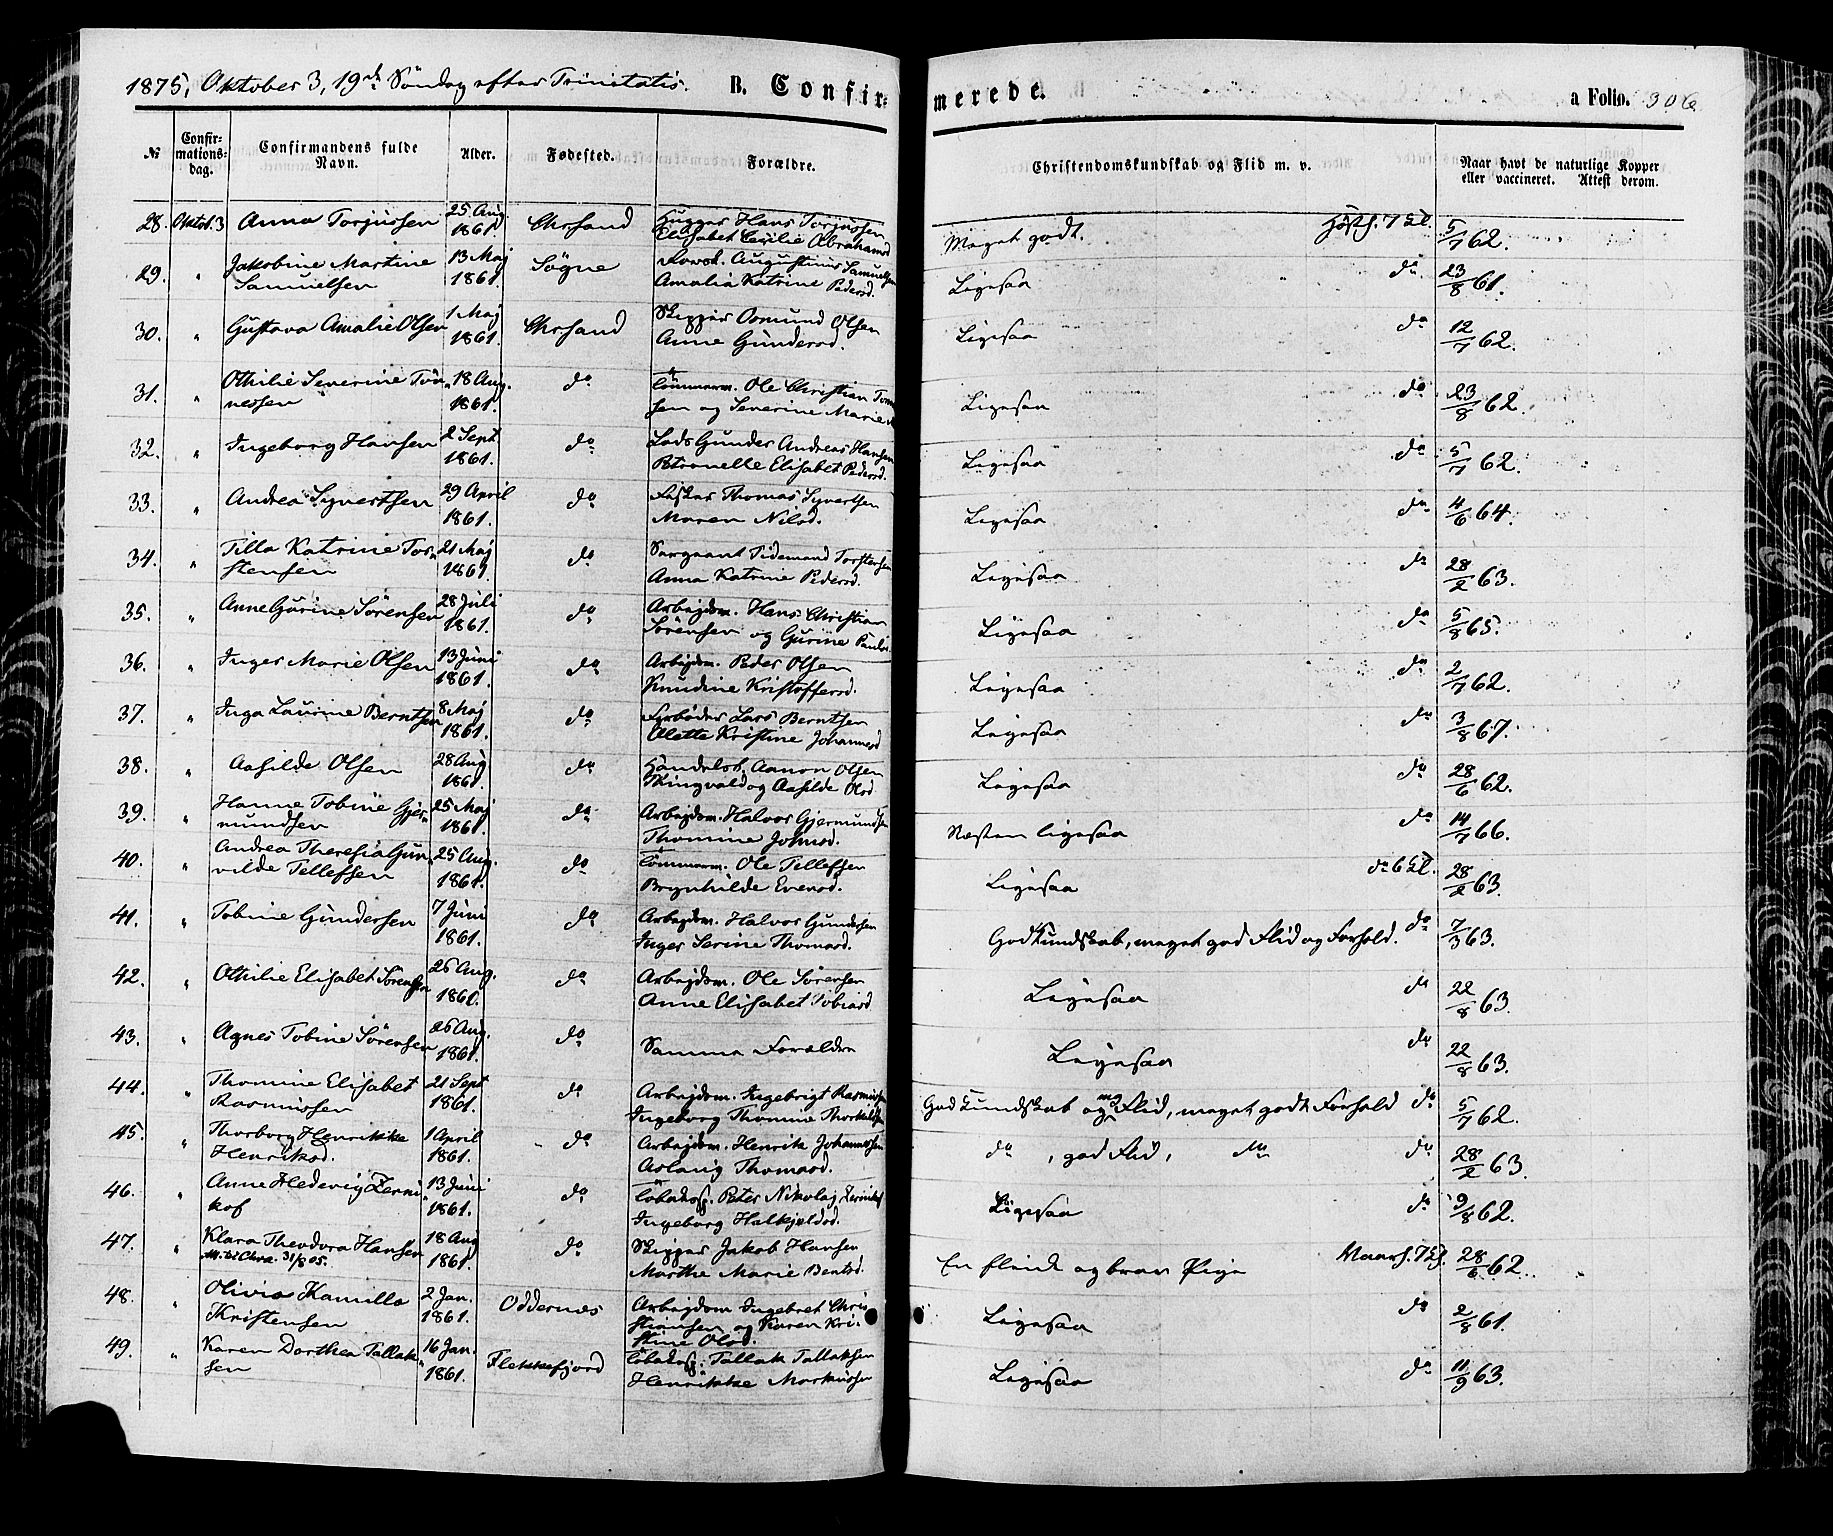 1875, Oktober 3, 19de Söndag efter Trinitatis.
B. Confirmerede.
a Folio. 306
№ Confirmationsdag. Confirmandens fulde Navn. Alder. Fødested. Forældre. Christendomskundskab og Flid m. v. Naar havt de naturlige Kopper eller vaccineret. Attest derom.
28. Oktob. 3 Anna Torjussen 25 Aug. 1861 Chrsand Hugger Hans Torjussen Elisabet Cecilie Abrahamsd Meget godt. Høstf. 7 El. 5/7 62.
29. " Jakobine Martine Samuelsen 13 Maj 1861. Søgne Augustinus Samuelsen Amalia Katrine Pedersd. Ligesaa do 23/8 61.
30. " Gustava Amalie Olsen 1 Maj 1861. Chrsand Skipper Osmund Olsen Anne Gundersd. Ligesaa do 12/7 62.
31. " Othilie Severine Tönnessen 18 Aug. 1861. do Tömmerm. Ole Christian Tönnessen og Severine Marie Ligesaa do 23/8 62.
32. " Ingeborg Hansen 2 Sept 1861. do Lods Gunder Andreas Hansen Petronelle Elisabet Pedersd. Ligesaa do 5/7 62.
33. " Andrea Syvertsen 29 April 1861. do Fisker Thomas Syvertsen Maren Nilsd. Ligesaa do 4/6 64.
34. " Tilla Katrine Torstensen 21 Maj 1861. do Sergeant Tidemand Torstensen Anna Katrine Pedersd. Ligesaa do 28/2 63.
35. " Anne Gurine Sörensen 28 Juli 1861. do Arbejdsm. Hans Christian Sörensen og Gurine Paulsd. Ligesaa do 5/8 65.
36. " Inger Marie Olsen 13 Juni 1861. do Arbejdsm. Peder Olsen Knudine Kristoffersd. Ligesaa do 2/7 62.
37. " Inga Laurine Berntsen 8 Maj 1861. do Fyrböder Lars Berntsen Olette Kristine Johannesd Ligesaa do 3/8 67.
38. " Aasilde Olsen 28 Aug 1861. do Handelsb. Aanon Olsen Thingvald og Aasilde Olsd Ligesaa do 28/6 62.
39. " Hanne Tobine Gjermundsen 25 Maj 1861. do Arbejdsm. Halvor Gjermundsen Thomine Johnsd. Næsten ligesaa do 14/7 66.
40. " Andrea Theresia Gunvilde Tellefsen 25 Aug. 1861. do Tömmerm. Ole Tellefsen Brynhilde Evensd. Ligesaa do 6 El. 28/2 63.
41. " Tobine Gundersen 7 Juni 1861. do Arbejdsm. Halvor Gundersen Inger Serine Thomasd. God Kundskab, meget god Flid og Forhold. do 7/3 63.
42. " Othilie Elisabet Sörensen 26 Aug. 1860. do Arbejdsm. Ole Sörensen Anne Elisabet Tobiasd Ligesaa do 22/8 63.
43. " Agnes Tobine Sörensen 26 Aug. 1861. do Samme Forældre Ligesaa do 22/8 63.
44. " Thomine Elisabet Rasmussen 21 Sept 1861. do Arbejdsm. Ingebrigt Rasmussen Ingeborg Thomine Thorkelsen God Kundskab og mg Flid, meget godt Forhold do 5/7 62.
45. " Thorborg Henrikke Henriksd. 1 April 1861. do Arbejdsm. Henrik Johannessen Aslaug Thomasd. do, god Flid, do do 28/2 63.
46. " Anne Hedevig Zernikof 13 Juni 1861. do Tobaksp. Peter Nikolaj Zernikof Ingeborg Halkjeldsd. Ligesaa do 9/8 62.
47. " Klara Theodora Hansen 18 Aug 1861. do Skipper Jakob Hansen Marthe Marie Bentsd. En flink og brav Pige Vaarf. 7 El. 28/6 62.
31/8 05.
48. " Olivia Kamilla Kristensen 2 Jan. 1861. Oddernes Arbejdsm Ingebret Christiansen og Karen Kristine Olsd. Ligesaa do 2/8 61.
49. " Karen Dorthea Tallaksen 16 Jan. 1861. Flekkefjord Tobaksp. Tallak Tallaksen Henrikke Markussen Ligesaa do 11/9 63.